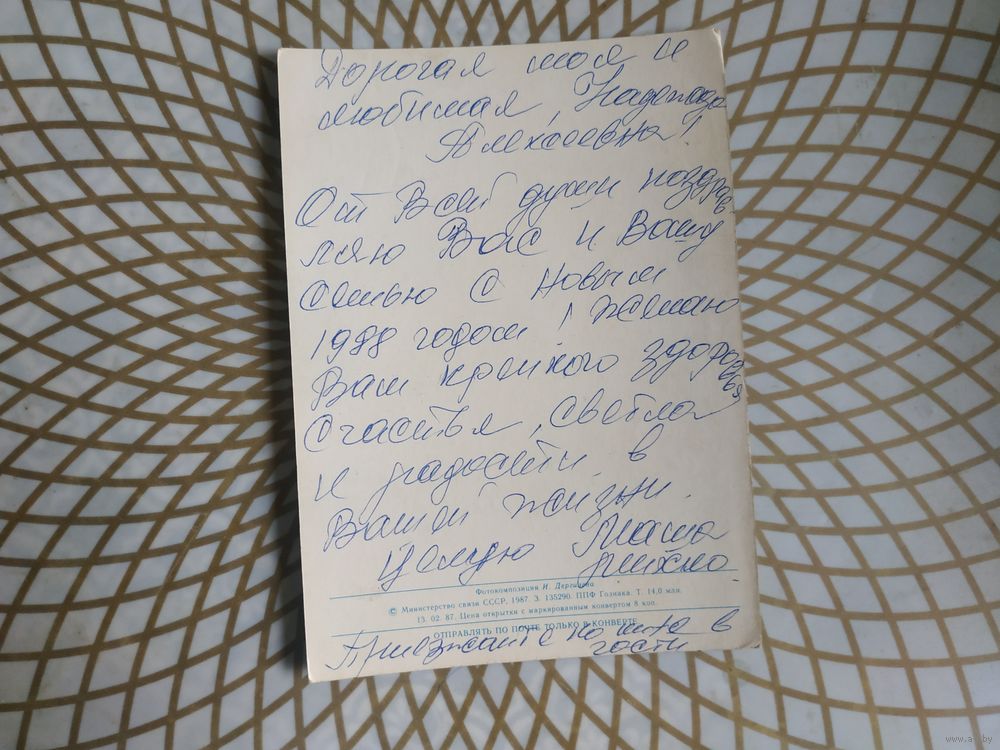 Дорогая моя и
любимая, Надежда
Алексеевна!
От Всей души поздрав-
ляю Вас и Вашу
семью с новым
1988 годом! Желаю
Вам крепкого здоровья
счастья, светла
и радости в
Вашей жизни.
Целую
Фотокомпозиция И. Дергилева
© Министерство связи СССР, 1987. З. 135290. ППФ Гознака. Т. 14,0 млн.
13. 02. 87. Цена открытки с маркированным конвертом 8 коп.
ОТПРАВЛЯТЬ ПО ПОЧТЕ ТОЛЬКО В КОНВЕРТЕ
Приезжайте в
гости